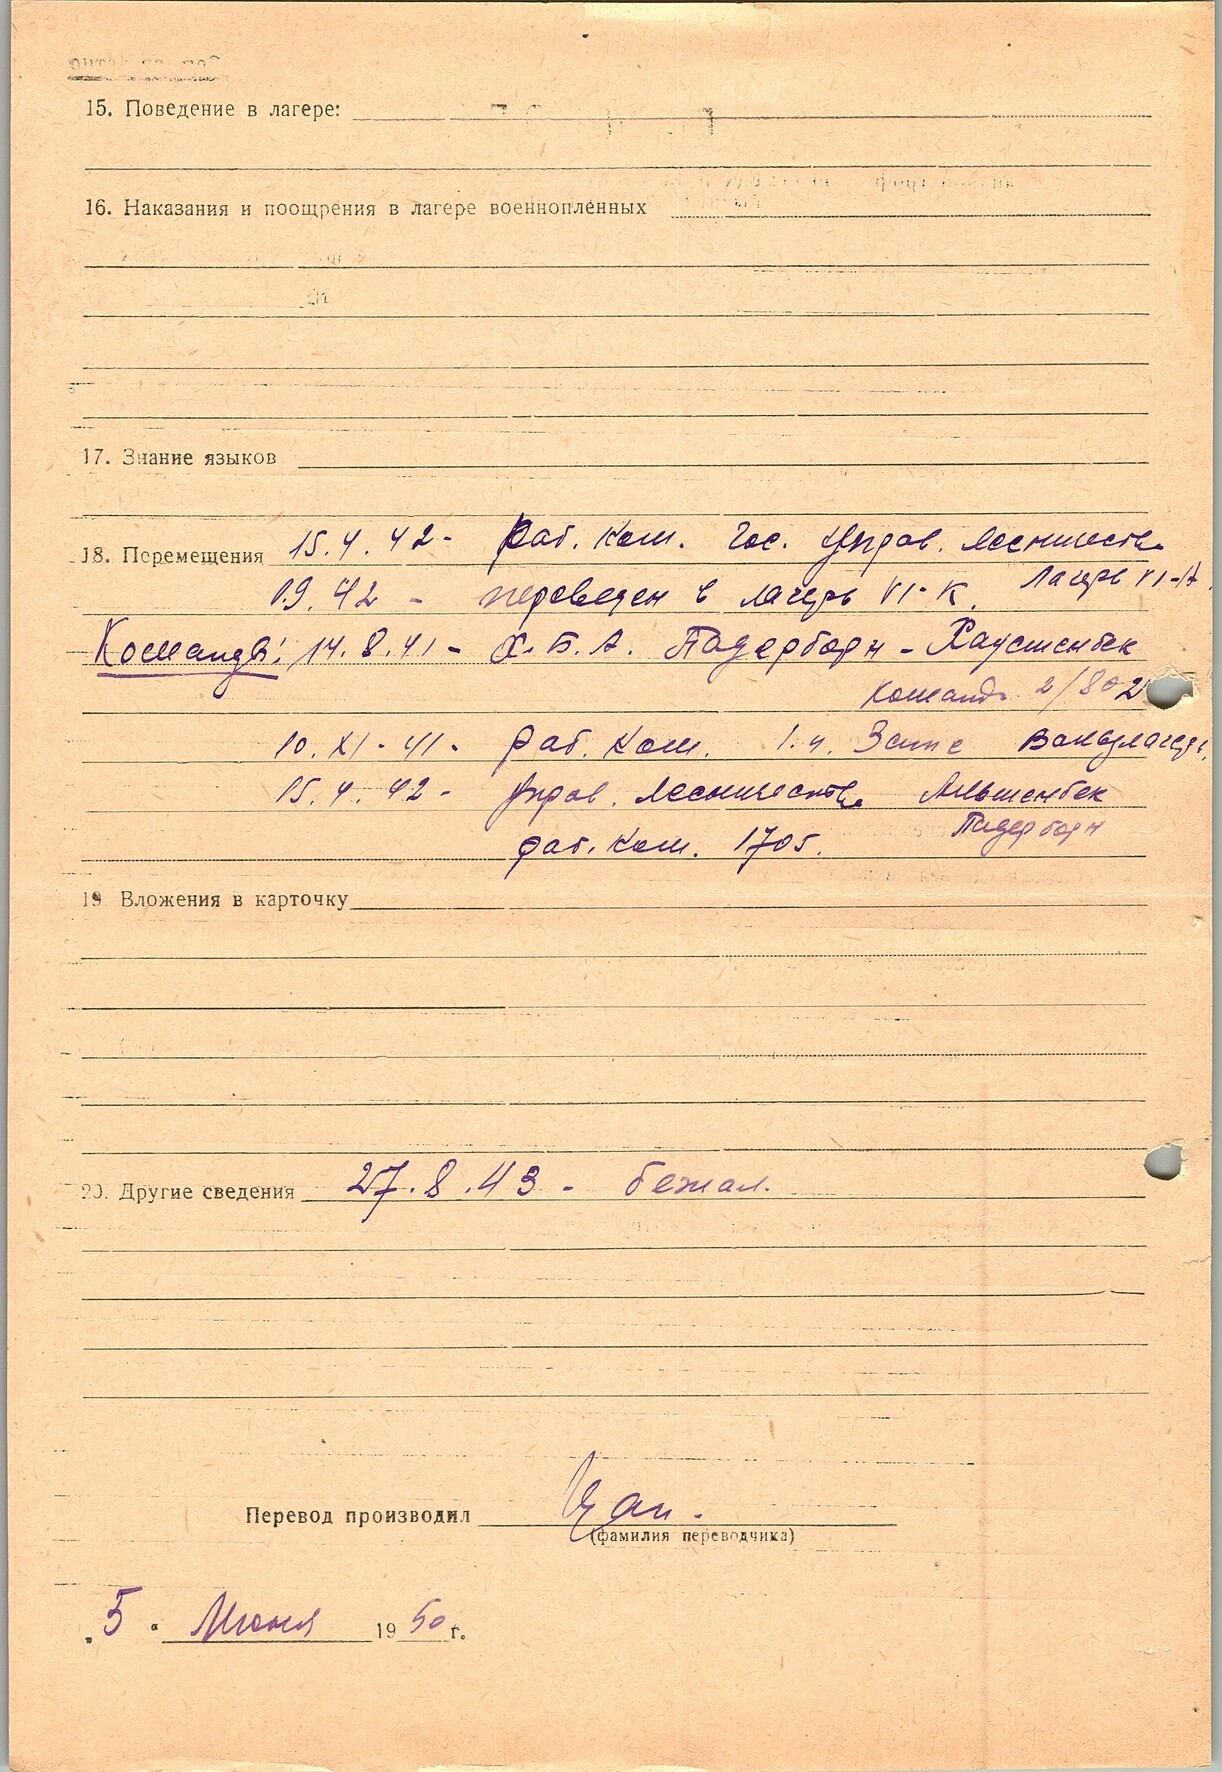 15. Поведение в лагере:
16. Наказания и поощрения в лагере военнопленных
17. Знание языков
18. Перемещения 15.4.42- Раб. Ком. Гос. Управ. Лесничества
Лагерь VI-А
09.42 - переведен в лагерь VI-К.
Команды: 14.8.41 - Х.Б.А. Падерборн - Хаустенбек
Команда 2/802
10.XI-41- Раб. Ком. Зенне
15.4.42- Управ. Лесничества Альтенбек
Падерборн
Раб. Ком. 1705.
19. Вложения в карточку
20. Другие сведения 27.8.43 - бежал.
Перевод производил
(фамилия переводчика)
„5“ Июня 1950 г.